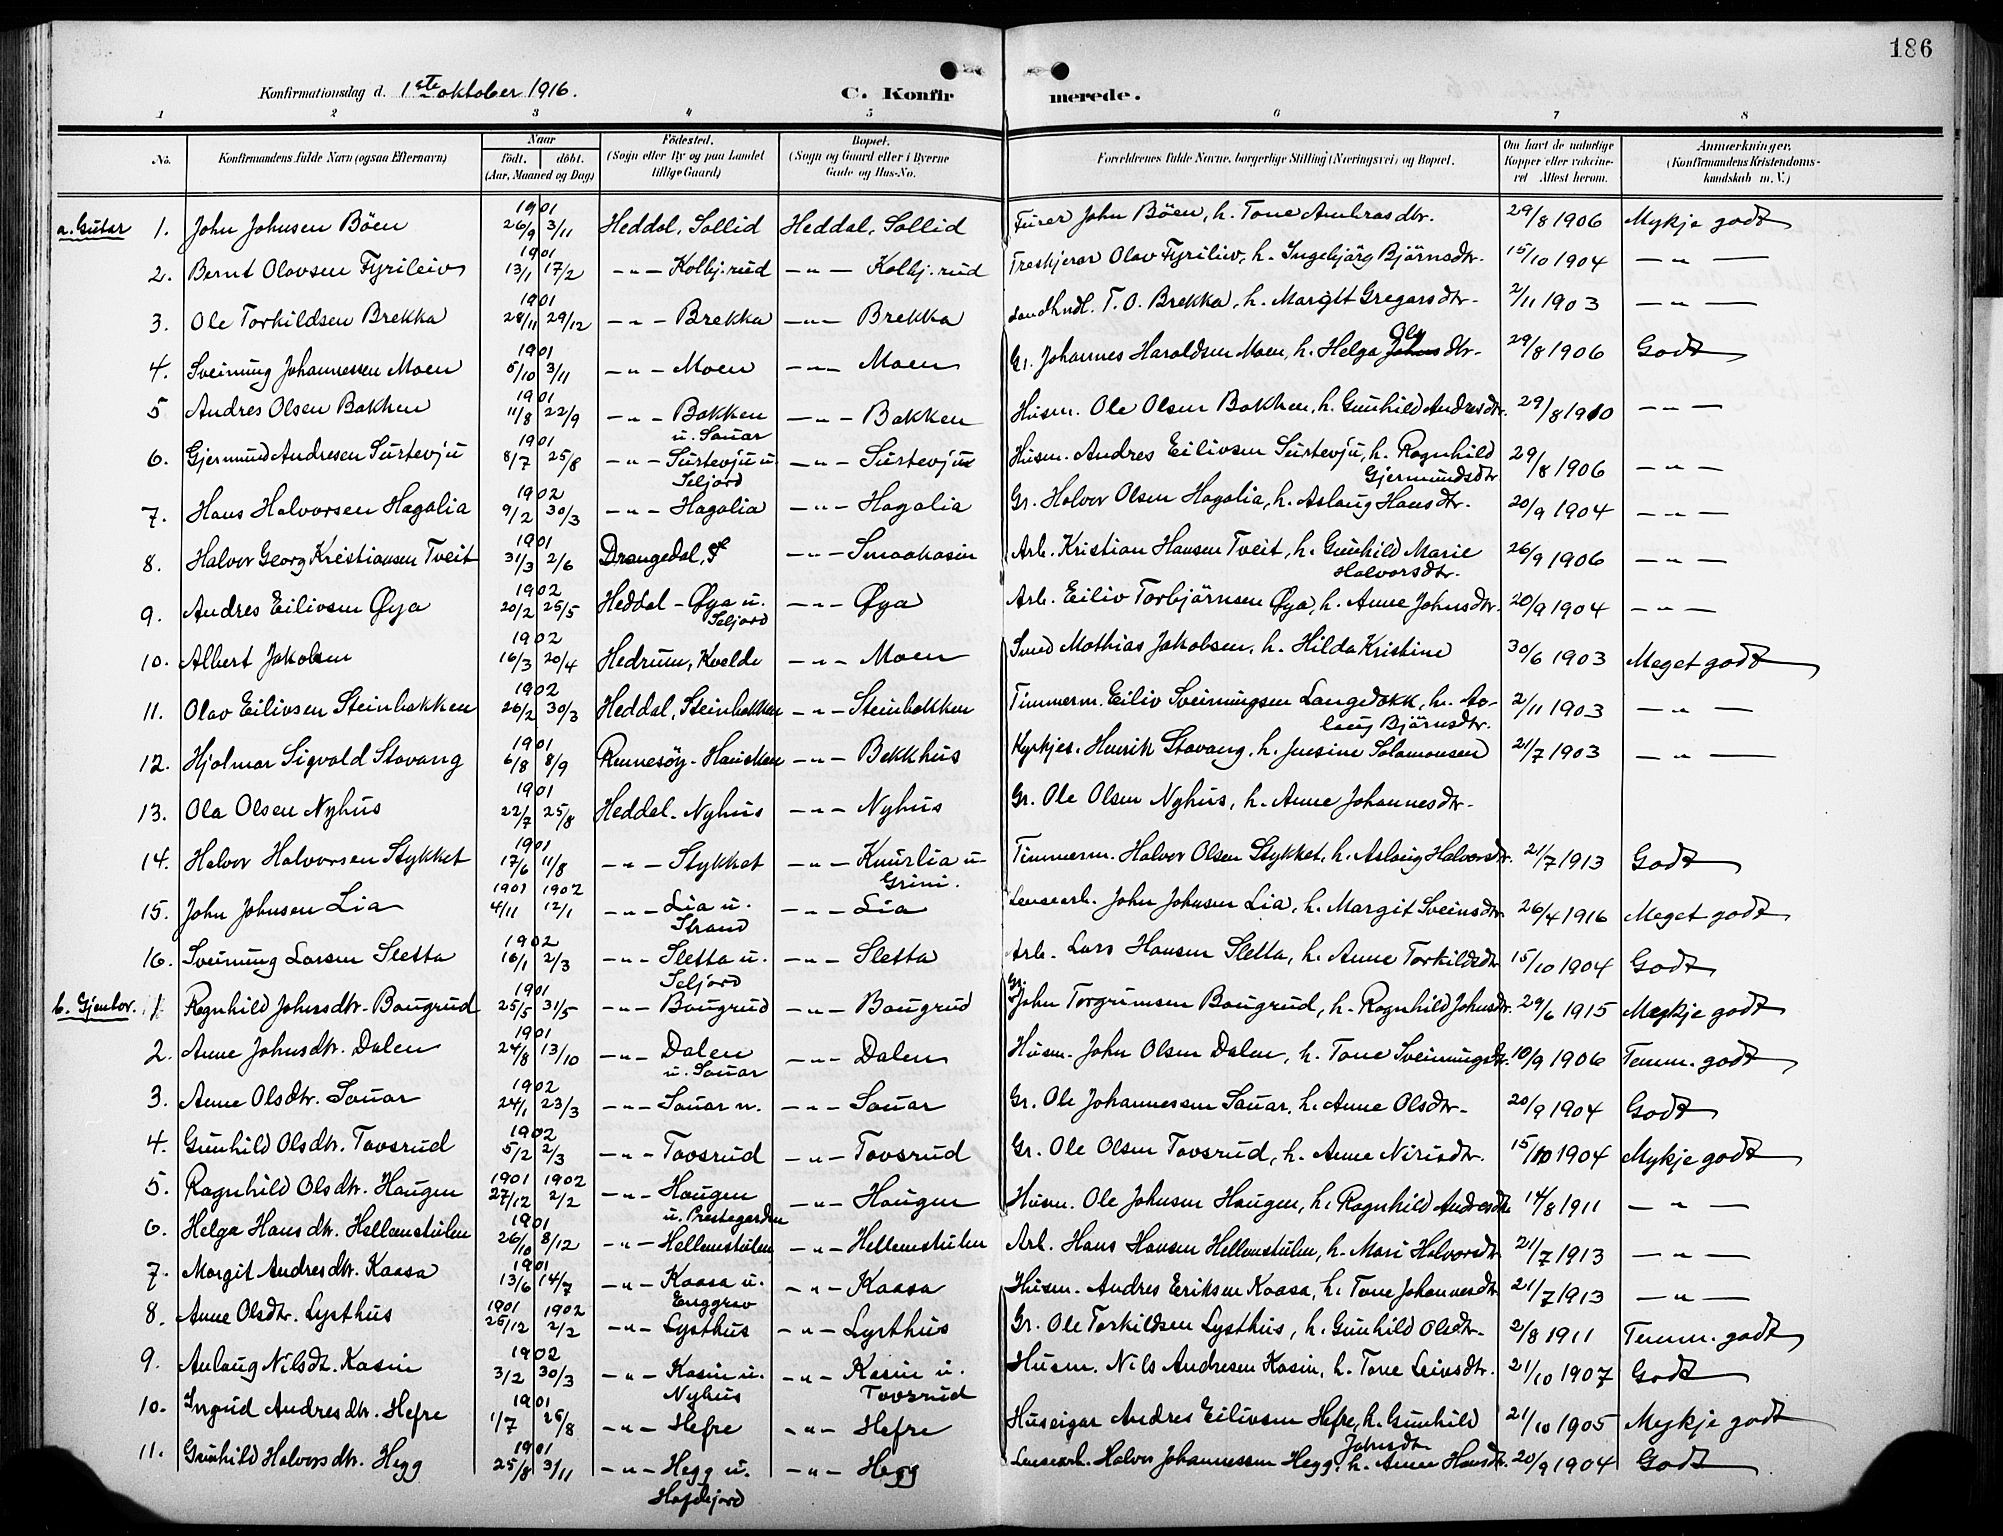 186
Konfirmationsdag d. 1ste oktober 1916. C. Konfirmerede.
1 2 3 4 5 6 7 8
No. Konfirmandens fulde Navn (ogsaa Efternavn) Naar født. døbt. (Aar, Maaned og Dag) Fødested. (Sogn eller By og paa Landet tillige Gaard) Bopæl. (Sogn og Gaard eller i Byerne Gade og Hus-No. Forældrenes fulde Navne, borgerlige Stilling (Næringsvei) og Bopæl. Om havt de naturlige Kopper eller vaksineret Attest herom. Anmærkninger. (Konfirmandens Kristendomskundskab m. V.)
a. Gutar 1. John Johnsen Böen 1901 26/9 3/11 Heddal, Sollid Heddal, Sollid Furer John Böen, h. Tone Ambrosdtr. 29/8 1906 Mykje godt
2. Bernt Olavsen Fyrileiv 1901 13/1 17/2 -"- Kolbj.rud -"- Kolbj.rud Treskjerar Olav Fyrileiv, h. Ingebjörg Björnsdtr. 15/10 1904 -"-
3. Ole Torkildsen Brekka 1901 28/11 29/12 -"- Brekka -"- Brekka Landhndl. T. O. Brekka, h. Margitt Gregarsdtr. 2/11 1903 -"-
4. Sveinung Johannessen Moen 1901 5/10 3/11 -"- Moen -"- Moen Gr. Johannes Haraldsen Moen, h. Helga Olsdtr. 29/8 1906 Godt
5. Andres Olsen Bakken 1901 11/8 22/9 -"- Bakken u. Sauar -"- Bakken Husm. Ole Olsen Bakken, h. Gunhild Andresdtr. 29/8 1910 -"-
6. Gjermund Andresen Surtevju 1901 8/7 25/8 -"- Surtevju u. Seljord -"- Surtevju Husm. Andres Eilivsen Surtevju, h. Ragnhild Gjermundsdtr. 29/8 1906 -"-
7. Hans Halvorsen Hagalia 1902 9/2 30/3 -"- Hagalia -"- Hagalia Gr. Halvor Olsen Hagalia, h. Aslaug Hansdtr. 20/9 1904 -"-
8. Halvor Georg Kristiansen Tveit 1901 31/3 2/6 Drangedal, -"- Smaakasin Arb. Kristian Hansen Tveit, h. Gunhild Marie Halvorsdtr. 26/9 1906 -"-
9. Andres Eilivsen Øya 1902 20/2 25/5 Heddal - Øya u. Seljord -"- Øya Arb. Eiliv Torbjörnsen Øya, h. Anne Johnsdtr. 20/9 1904 -"-
10. Albert Jakobsen 1902 16/3 20/4 Hedrum, Kvelde -"- Moen Smed Mathias Jakobsen, h. Hilda Kristine 30/6 1903 Meget godt
11. Olav Eilivsen Steinbakken 1902 26/2 30/3 Heddal, Steinbakken -"- Steinbakken Timmerm. Eiliv Sveinungsen Langedokk, h. Aslaug Björnsdtr. 2/11 1903 -"-
12. Hjalmar Sigvald Stavang 1901 6/8 8/9 Rennesöy - Hausken -"- Bekkhus Kyrkjes. Henrik Stavang, h. Jensine Salamonsen 21/7 1903 -"-
13. Ola Olsen Nyhus 1901 22/7 25/8 Heddal - Nyhus -"- Nyhus Gr. Ole Olsen Nyhus, h. Anne Johannesdtr.
14. Halvor Halvorsen Stykket 1901 17/6 11/8 -"- Stykket -"- Knurlia u. Grini. Timmerm. Halvor Olsen Stykket, h. Aslaug Halvorsdtr. 21/7 1913 Godt
15. John Johnsen Lia 1901 4/11 1902 12/1 -"- Lia u. Strand -"- Lia Lensearb. John Johnsen Lia, h. Margit Sveinsdtr. 26/4 1916 Meget godt
16. Sveinung Larsen Sletta 1902 16/1 2/3 -"- Sletta u. Seljord -"- Sletta Arb. Lars Hansen Sletta, h. Anne Torkildsdtr. 15/10 1904 Godt
b. Gjentor. 1. Ragnhild Johnsdtr. Baugrud 1901 25/5 31/5 -"- Baugrud -"- Baugrud Gr. John Torgrimsen Baugrud, h. Ragnhild Johnsdtr. 29/6 1915 Mykje godt
2. Anne Johnsdtr. Dalen 1901 24/8 13/10 -"- Dalen u. Sauar -"- Dalen Husm. John Olsen Dalen, h. Tone Sveinungsdtr. 10/9 1906 Temm. godt
3. Anne Olsdtr. Sauar 1902 24/1 23/3 -"- Sauar n. -"- Sauar Gr. Ole Johannessen Sauar, h. Anne Olsdtr. 20/9 1904 Godt
4. Gunhild Olsdtr. Tovsrud 1902 5/2 2/3 -"- Tovsrud -"- Tovsrud Gr. Ole Olsen Tovsrud, h. Anne Nirisdtr. 15/10 1904 Mykje godt
5. Ragnhild Olsdtr. Haugen 1901 27/12 1902 2/2 -"- Haugen u. Prestegarden -"- Haugen Husm. Ole Johnsen Haugen, h. Ragnhild Andresdtr. 14/8 1911 -"-
6. Helga Hansdtr. Hellemstulen 1901 26/10 8/12 -"- Hellemstulen -"- Hellemstulen Arb. Hans Hansen Hellemstulen, h. Mari Halvorsdtr. 21/7 1913 -"-
7. Margit Andresdtr. Kaasa 1901 13/6 14/7 -"- Kaasa u. Enggrav -"- Kaasa Husm. Andres Eriksen Kaasa, h. Tone Johannesdtr. 21/7 1913 -"-
8. Anne Olsdtr. Lysthus 1901 25/12 1902 2/2 -"- Lysthus -"- Lysthus Gr. Ole Torkildsen Lysthus, h. Gunhild Olsdtr. 2/8 1911 Temm. godt
9. Aslaug Nilsdt. Kasin 1902 3/2 30/3 -"- Kasin u. Nyhus -"- Kasin u. Tovsrud Husm. Nils Andresen Kasin, h. Tone Leivsdtr. 21/10 1907 Godt
10. Ingrid Andresdtr. Hefre 1901 1/7 25/8 -"- Hefre -"- Hefre Huseigar Andres Eilivsen Hefre, h. Gunhild Johnsdtr. 21/10 1905 Mykje godt
11. Gunhild Halvorsdtr. Hegg 1901 25/8 3/11 -"- Hegg u. -"- Hegg Lensearb. Halvor Johannessen Hegg, h. Anne Hansdtr. 20/9 1904 Godt